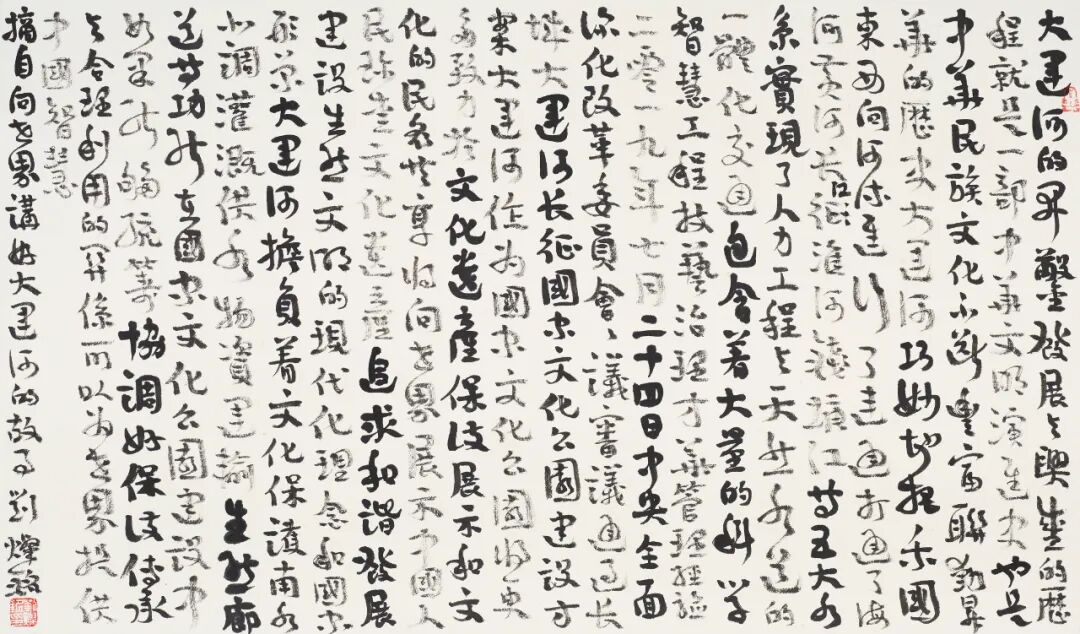 大運河的開鑿發展與興盛的歷
程就是一部中華文明演進史也是
中華民族文化不斷豐富聯動昇
華的歷史大運河巧妙地把我國
東西向河流進行了連通打通了海
河黃河长江淮河錢塘江等五大水
系實現了人力工程与天然水道的
一體化交通包含着大量的科学
智慧工程技藝治理方案管理經驗
二零一九年七月二十四日中央全面
深化改革委員會會議審議通過长
城大運河长征國家文化公園建設方
案大運河作为國家文化公園將更
多致力於文化遺産保護展示和文
化的民衆共享將向世界展示中國人
民珍惜文化遺産追求和諧發展
建設生態文明的現代化理念和國家
形象大運河擔負着文化保護南水
北調灌溉供水物資運輸生態廊
道等功能在國家文化公園建設中
如果能夠統籌協調好保護傳承
与合理利用的關係可以为世界提供
中國智慧
摘自向世界講好大運河的故事 劉燦銘